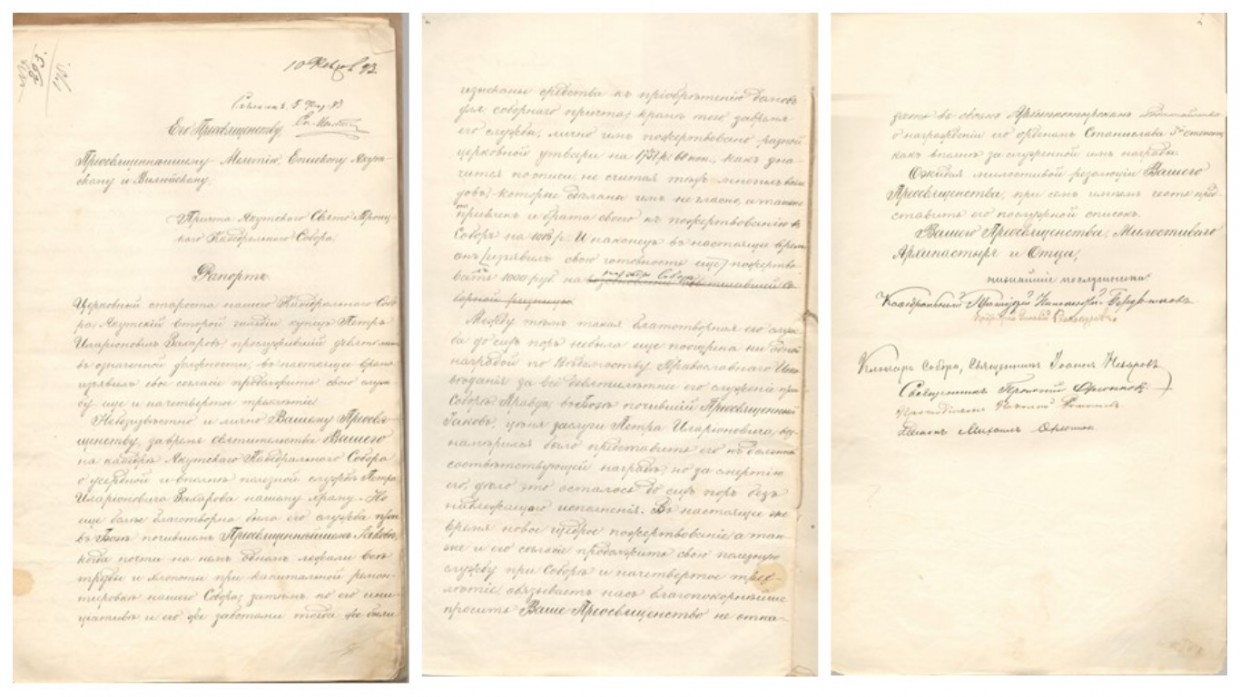 10 Февр. 93
Его Преосвященству,
Преосвященнѣйшему Мелетію, Епископу Якут-
скому и Вилюйскому
Причта Якутскаго Свято-Троиц-
каго Каѳедральнаго Собора
Рапортъ.
Церковный староста нашего Каѳедральнаго Собо-
ра Якутскій второй гильдіи купецъ Петръ
Иларіоновичъ Захаровъ прослужившій девять лѣтъ
въ означенной должности, въ настоящее время
изъявилъ свое согласіе продолжить свою служ-
бу еще и на четвертое трехлѣтіе.
Небезизвестно и лично Вашему Преосвя-
щенству, за время святительства Вашего
на каѳедрѣ Якутскаго Каѳедральнаго Собора
о усердной и вполнѣ полезной службѣ Петра
Иларіоновича Захарова нашему храму. Но
еще болѣе благотворна была его служба при
въ Бозѣ почившемъ Преосвященнѣйшемъ Іаковѣ,
когда почти на немъ одномъ лежали всѣ
труды и хлопоты при капитальной ремон-
тировкѣ нашего Собора; затѣмъ по его ини-
циативѣ и его же заботами тогда же были
изысканы средства къ пріобрѣтенію домовъ
для соборнаго причта; кромѣ того за время
его службы, лично имъ пожертвовано разной
церковной утвари на 1751 р. 60 коп., какъ зна-
чится по описи, не считая тѣхъ многихъ расхо-
довъ, которые дѣланы имъ не гласно, а также
привлекъ и брата своего къ пожертвованію въ
Соборъ на 1008 р. И наконецъ въ настоящее время
онъ изъявилъ свою готовность еще пожертво-
вать 1000 руб. на
нужды Собора
борной ризницы.
Между тѣмъ такая благотворная его служ-
ба до сихъ поръ небыла еще поощрена ни одной
наградой по Вѣдомству Православнаго Испо-
вѣданія за все девятилѣтнее его служеніе при
Соборѣ. Правда, въ Бозѣ почившій Преосвященный
Іаковъ, цѣня заслуги Петра Иларіоновича,
намѣрился было представить его къ должной
соотвѣтствующей наградѣ; но за смертію
его, дѣло это осталось до сихъ поръ безъ
надлежащаго исполненія. Въ настоящее же
время новое щедрое пожертвованіе а так-
же и его согласіе продолжить свою полезную
службу при Соборѣ и на четвертое трех-
лѣтіе, обязываетъ насъ благопокорнѣйше
просить Ваше Преосвященство не отка-
зать въ своемъ Архипастырскомъ
о награжденіи его орденомъ Станислава 3й степени,
какъ вполнѣ заслуженной имъ награды.
Ожидая милостивой резолюціи Вашего
Преосвященства, при семъ имѣемъ честь пред-
ставить его послужной списокъ.
Вашего Преосвященства, Милостиваго
Архипастыря и Отца,
нижайшіе послушники
Каѳедральный
Ключарь Собора, священникъ Іоаннъ
Священникъ
Діаконъ Михаилъ Охлопковъ